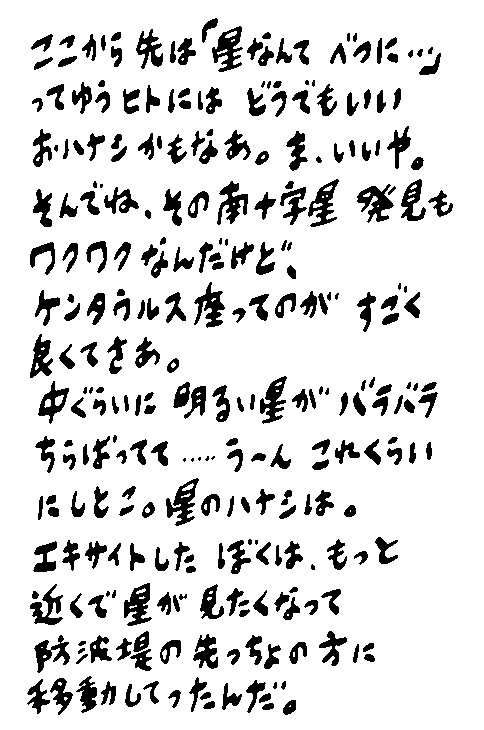 ここから先は「星なんて べつに…」
ってゆうヒトには どうでもいい
おハナシかもなあ。ま、いいや。
そんでね、その南十字星 発見も
ワクワクなんだけど、
ケンタウルス座ってのが すごく
良くてさあ。
中ぐらいに 明るい星が バラバラ
ちらばってて ….. う〜ん これくらい
にしとこ。星のハナシは。
エキサイトした ぼくは、もっと
近くで星が 見たくなって
防波堤の先っちょの方に
移動してったんだ。